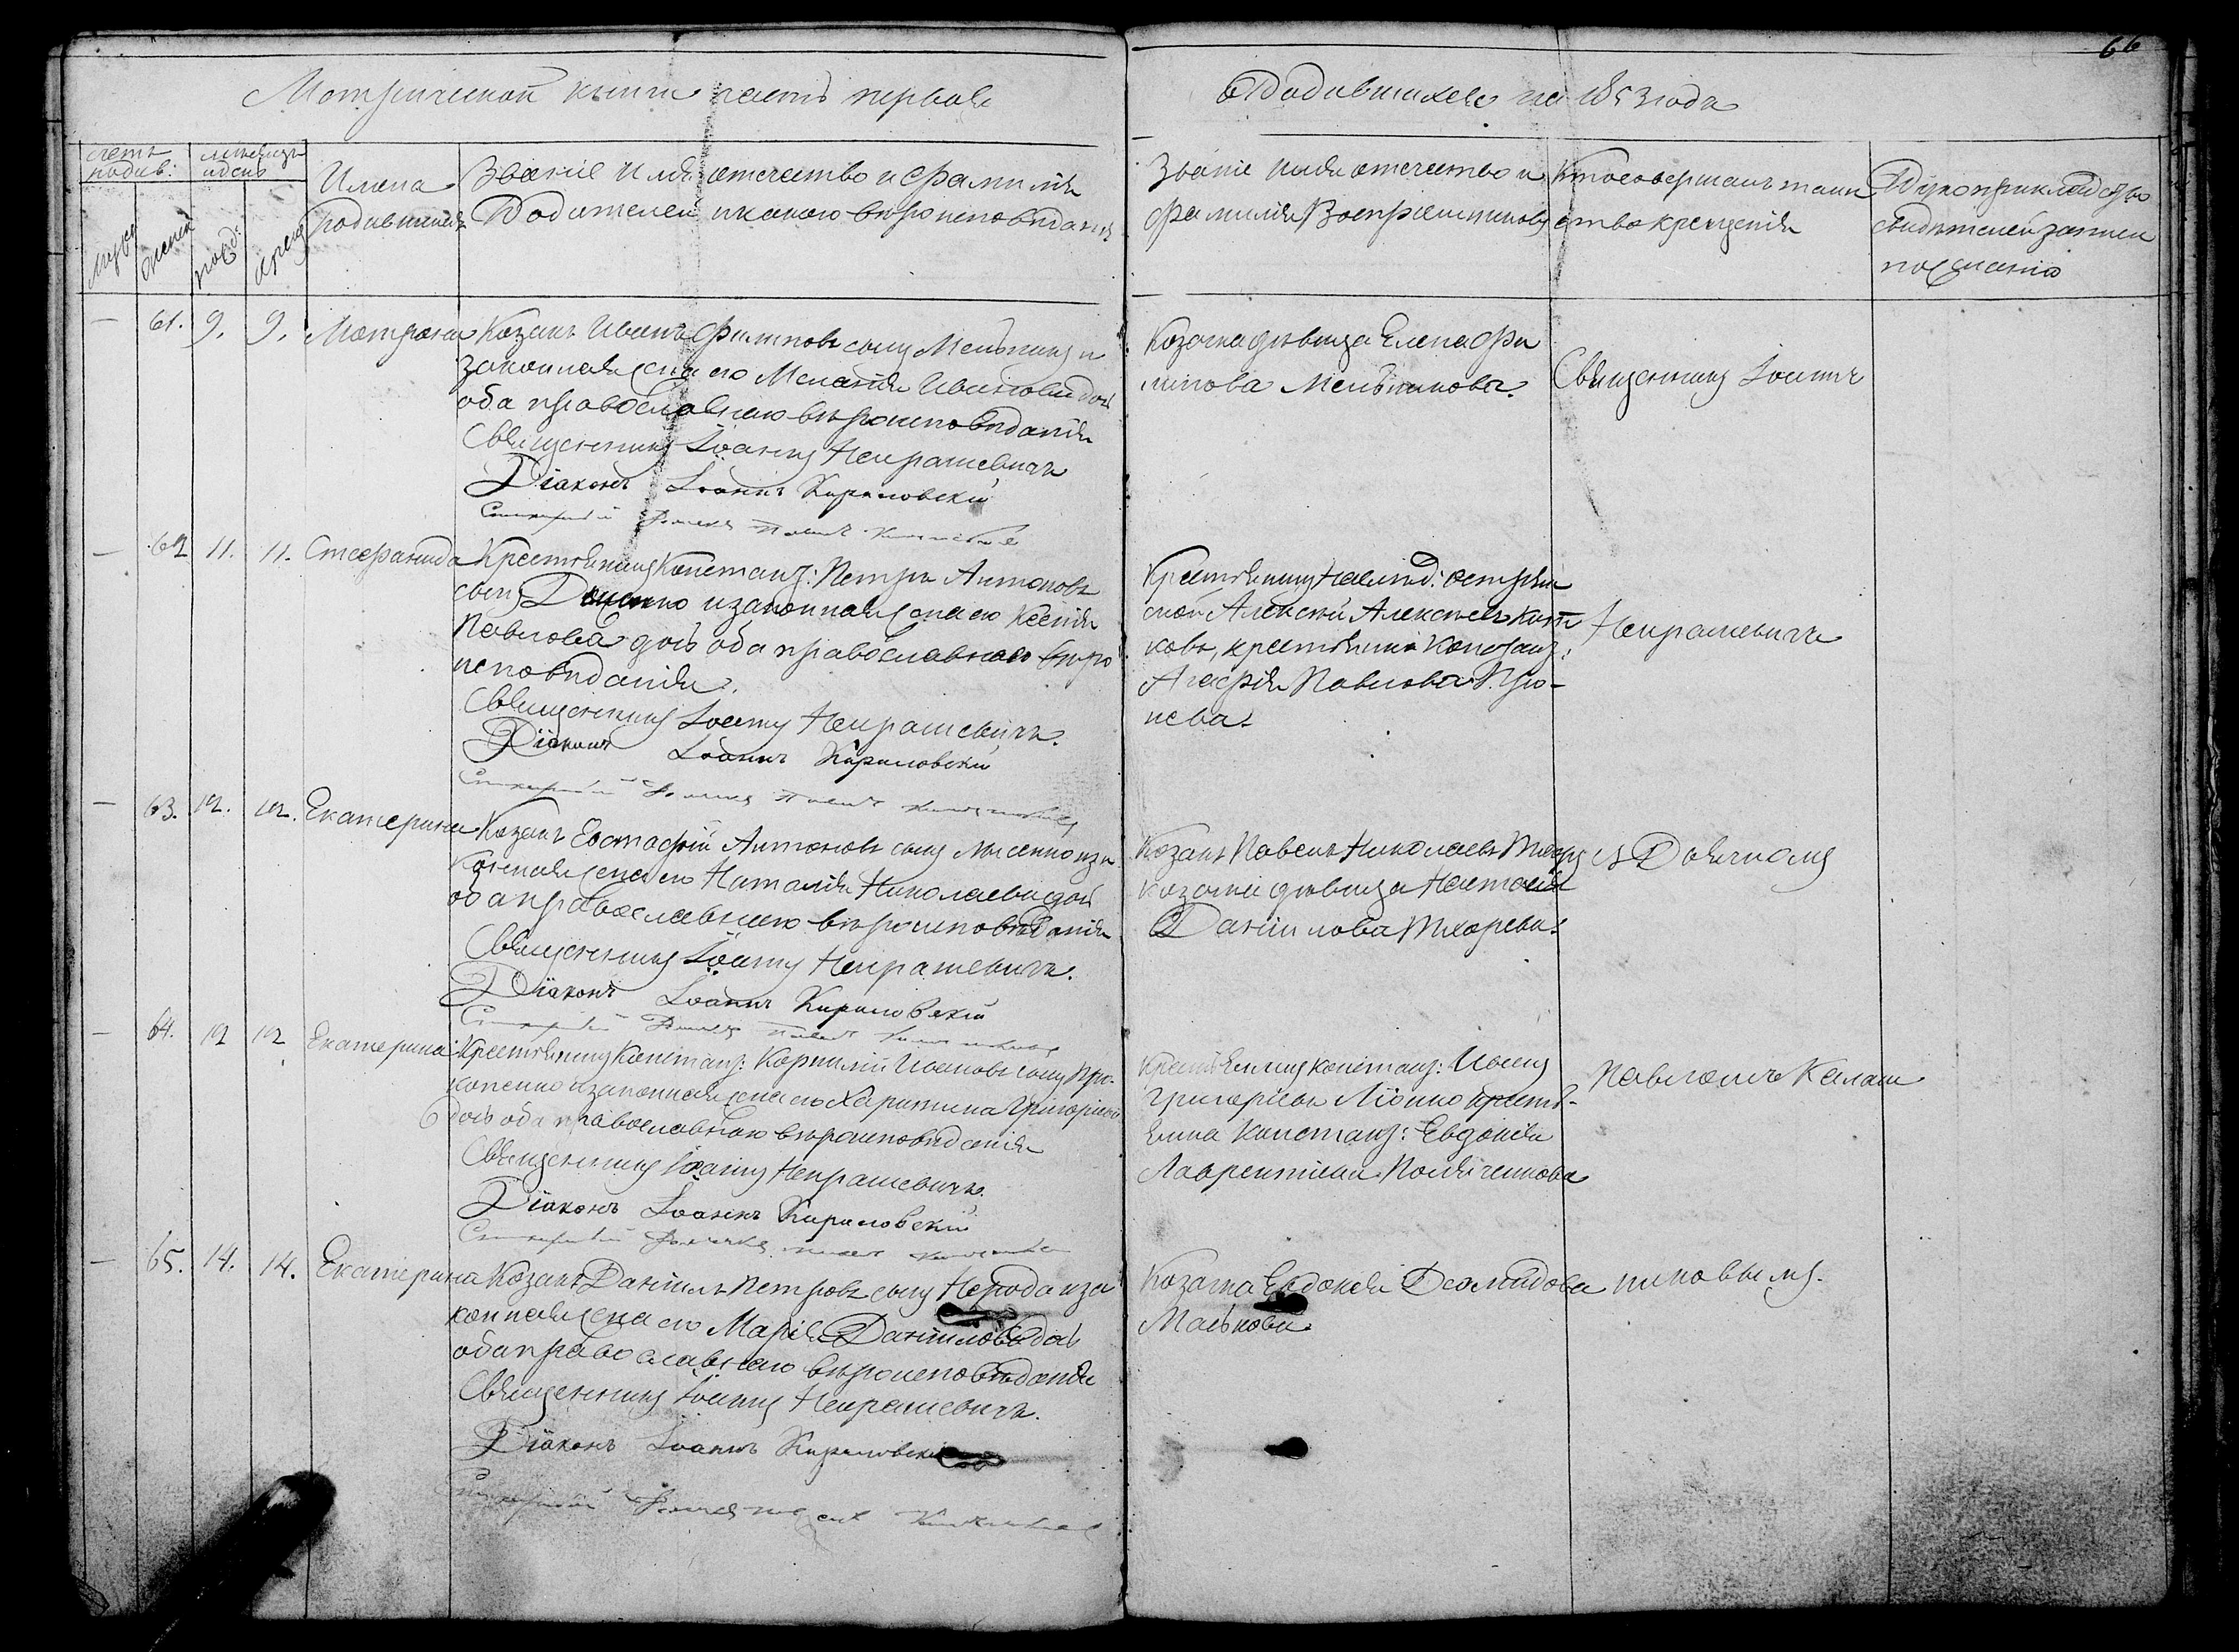 66
Метрической книги часть первая
о Родившихся на 1853 года
счетъ родив:
мѣсяцъ и день
Имена родившихся
Званіе Имя отечество и Фамилія
Родителей и какого вѣроисповѣданія
Званіе имя отечество и
фамилія Воспріемниковъ
Кто совершалъ таин
ство крещенія
Рукоприкладство
свидѣтелей записи
по желанію
мужес
женск
рожд:
крещ
— 61. 9. 9. Матрона Козакъ Иванъ Филиповъ сынъ Мельникъ и
законная жена его Меланія Иванова дочь
оба православнаго вѣроисповѣданія
Священникъ Іоаннъ Неирашевичъ
Діаконъ Іоаннъ Кириловскій
Козачка дѣвица Елена Фи
липова Мельникова.
Священникъ Іоаннъ
— 62 11. 11. Стефанида Крестьянинъ Констанъ: Петръ Антоновъ
сынъ и законная жена его Ксенія
Павлова дочь оба православнаго вѣро
исповѣданія.
Священникъ Іоаннъ Неирашевичъ.
Діаконъ Іоаннъ Кириловскій
Крестьянинъ
Алексѣй Алексѣевъ
ковъ, крестьянка Констанъ:
Агафія Павлова
нева.
Неирашевичъ
— 63. 12. 12. Екатерина Козакъ Евстафій Антоновъ сынъ Лысенко и за
конная жена его Наталія Николаева дочь
оба православнаго вѣроисповѣданія
Священникъ Іоаннъ Неирашевичъ.
Діаконъ Іоаннъ Кириловскій
Козакъ Павелъ Николаевъ
козачка дѣвица Настасія
Даниилова Тхорева.
съ Дьячкомъ
— 64. 12 12 Екатерина Крестьянинъ Констанъ: Корнилій Ивановъ сынъ Про-
копенко и законная жена его Харитина Григоріева
дочь оба православнаго вѣроисповѣданія
Священникъ Іоаннъ Неирашевичъ.
Діаконъ Іоаннъ Кириловскій
Крестьянинъ констанъ: Иванъ
Григоріевъ крестъ-
янка Констанъ: Евдокія
Лаврентіева
Павломъ Калаш
— 65. 14. 14. Екатерина Козакъ Даніилъ Петровъ сынъ Нерода и за
конная жена его Марія Даніилова дочь
оба православнаго вѣроисповѣданія
Священникъ Іоаннъ Неирашевичъ.
Діаконъ Іоаннъ Кириловскій
Козачка Евдокія Деомидова
Малькова
никовымъ.